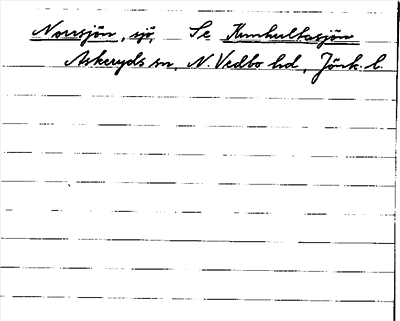 Norrsjön, sjö, Se Kumhultasjön
Askeryds sn, N. Vedbo hd, Jönk. l.